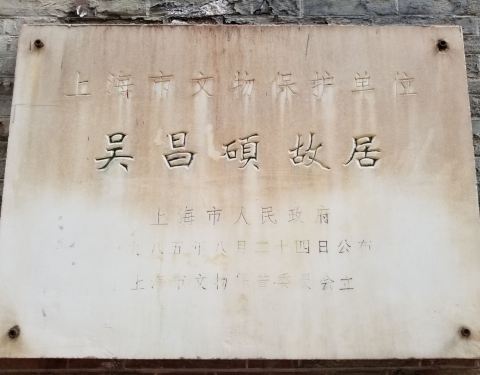 上海市文物保护单位
吴昌硕故居
上海市人民政府
八五年八月二十四日公布
上海市文物保管委员会立